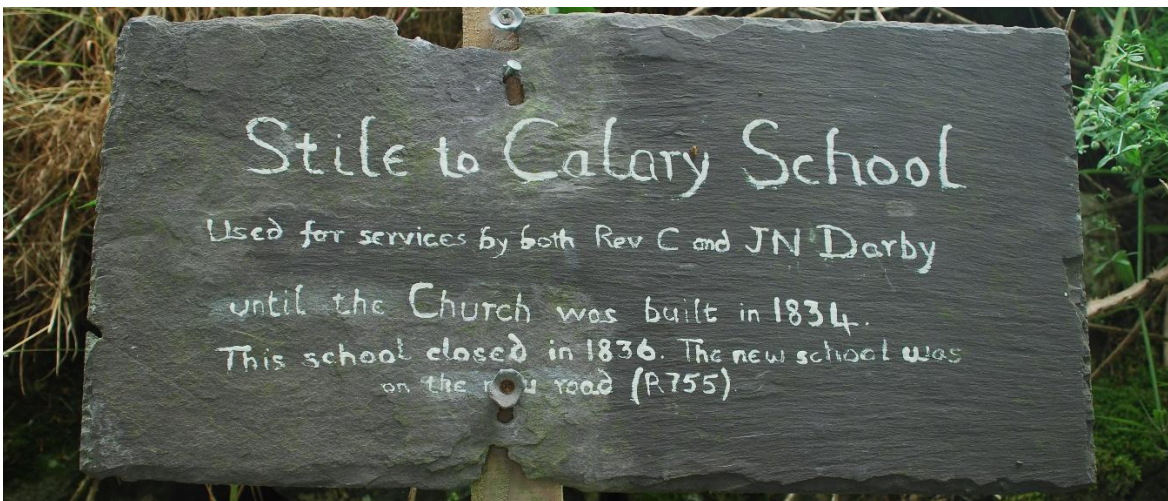 Stile to Calary School
Used for services by both Rev C and JN Darby
until the Church was built in 1834.
This school closed in 1836. The new school was
on the road (R755)